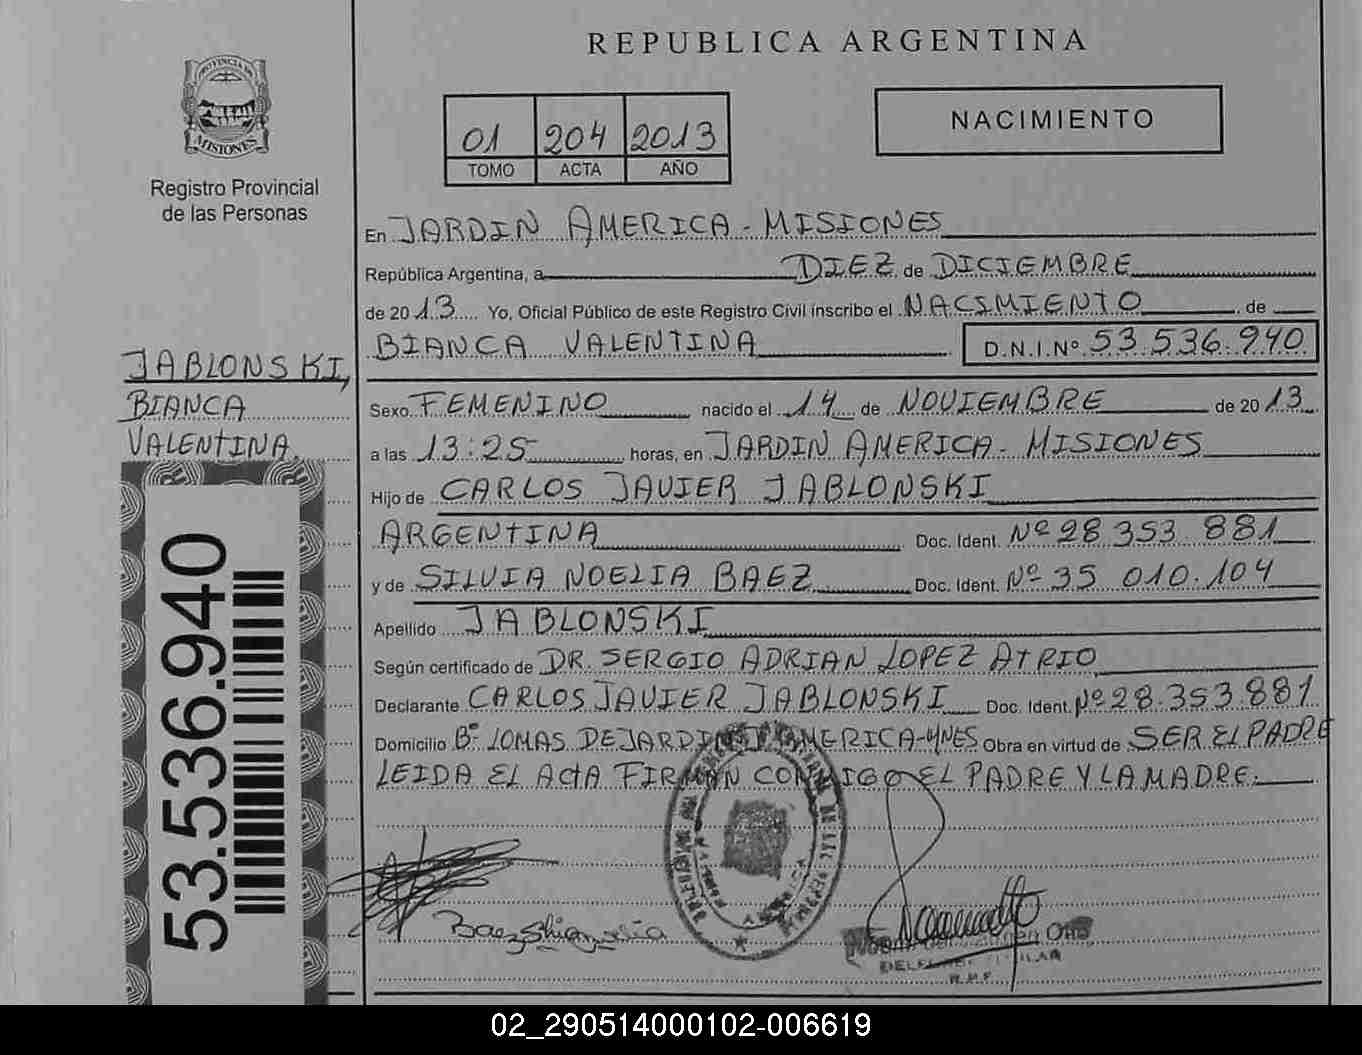 REPUBLICA ARGENTINA
PROVINCIA DE
MISIONES
Registro Provincial
de las Personas
01 204 2013
TOMO ACTA AÑO
NACIMIENTO
En JARDIN AMERICA - MISIONES
República Argentina, a DIEZ de DICIEMBRE
de 2013 Yo, Oficial Público de este Registro Civil inscribo el NACIMIENTO de
BIANCA VALENTINA D.N.I.Nº 53.536.940
JABLONSKI,
BIANCA
VALENTINA.
53.536.940
Sexo FEMENINO nacido el 14 de NOVIEMBRE de 2013
a las 13:25 horas, en JARDIN AMERICA - MISIONES
Hijo de CARLOS JAVIER JABLONSKI
ARGENTINA Doc. Ident. Nº 28.353.881
y de SILVIA NOELIA BAEZ Doc. Ident. Nº 35.010.104
Apellido JABLONSKI
Según certificado de DR. SERGIO ADRIAN LOPEZ ATRIO
Declarante CARLOS JAVIER JABLONSKI Doc. Ident. Nº 28.353.881
Domicilio Bº LOMAS DE JARDIN AMERICA-MNES Obra en virtud de SER EL PADRE
LEIDA EL ACTA FIRMAN CONMIGO EL PADRE Y LA MADRE.
02_290514000102-006619